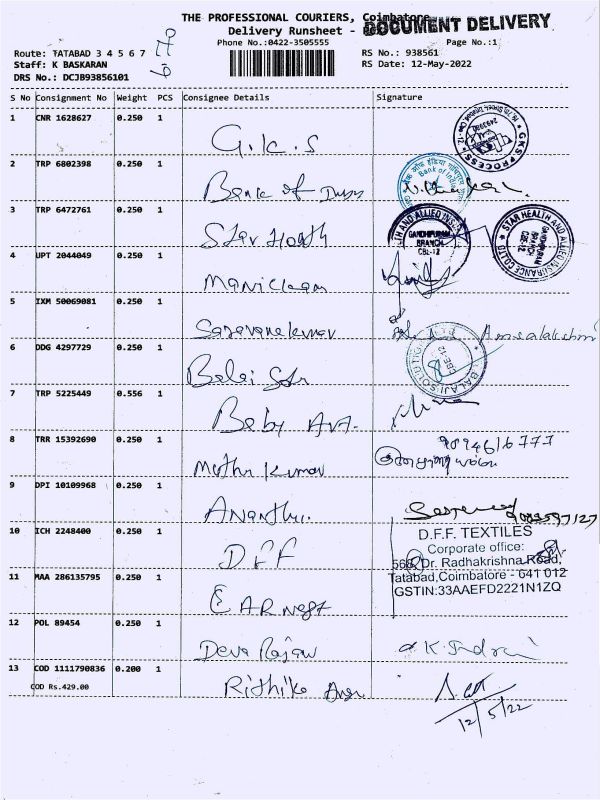 THE PROFESSIONAL COURIERS, Coimbatore
Delivery Runsheet -
DOCUMENT DELIVERY
Phone No.:0422-3505555
Page No.:1
Route: TATABAD 3 4 5 6 7
Staff: K BASKARAN
DRS No.: DCJB93856101
RS No.: 938561
RS Date: 12-May-2022
S No Consignment No Weight PCS Consignee Details Signature
1 CNR 1628627 0.250 1
G.K.S
GKS PROCESS
2 TRP 6802398 0.250 1
Bank of
Bank of India
3 TRP 6472761 0.250 1
Star Health
GANDHIPURAM
BRANCH
CBE-12
STAR HEALTH AND ALLIED INSURANCE CO LTD
GANDHIPURAM
BRANCH
CBE-12
4 UPT 2044049 0.250 1
Manickam
5 IXM 50069081 0.250 1
Saravanakumar
6 DDG 4297729 0.250 1
Balaji Soln
BALAJI SOLUTION
CBE-12
7 TRP 5225449 0.556 1
Baby
8 TRR 15392690 0.250 1
Muthu Kumar
9894616777
9 DPI 10109968 0.250 1
Ananthi.
10 ICH 2248400 0.250 1
DFF
D.F.F. TEXTILES
Corporate office:
566, Dr. Radhakrishna Road,
Tatabad,Coimbatore - 641 012
GSTIN:33AAEFD2221N1ZQ
11 MAA 286135795 0.250 1
EARNEST
12 POL 89454 0.250 1
Deva Rajan
13 COD 1111790836 0.200 1
COD Rs.429.00
Rithika
12/5/22